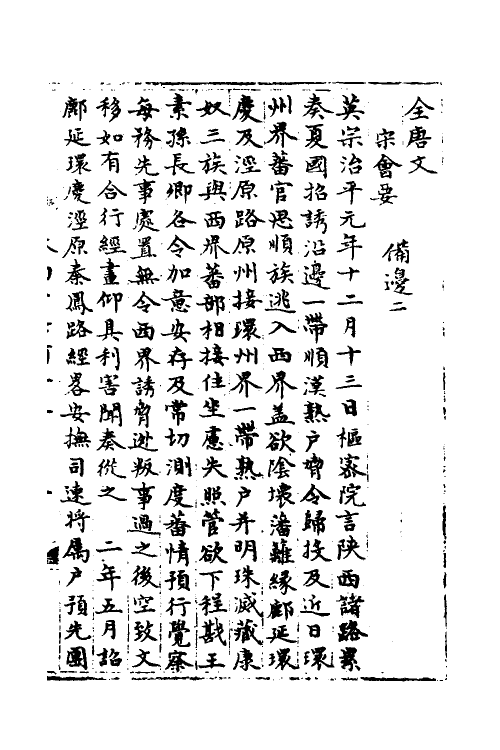 全唐文
宋會要　備邊二
英宗治平元年十二月十三日樞宻院言陝西諸路累
奏夏國招誘沿邊一帶順漢熟户脅令歸投及近日環
州界蕃官思順族逃入西界盖欲陰壞藩籬緣鄜延環
慶及涇原路原州接環州界一帶熟户并明珠滅藏康
奴三族與西界蕃部相接住坐慮失照管欲下程戡王
素孫長卿各令加意安存及常切測度蕃情預行覺察
每務先事處置無令西界誘脅逊叛事過之後空致文
移如有合行經畫仰具利害聞奏從之　二年五月詔
鄜延環慶涇原秦鳳路經畧安撫司速將屬户預先團